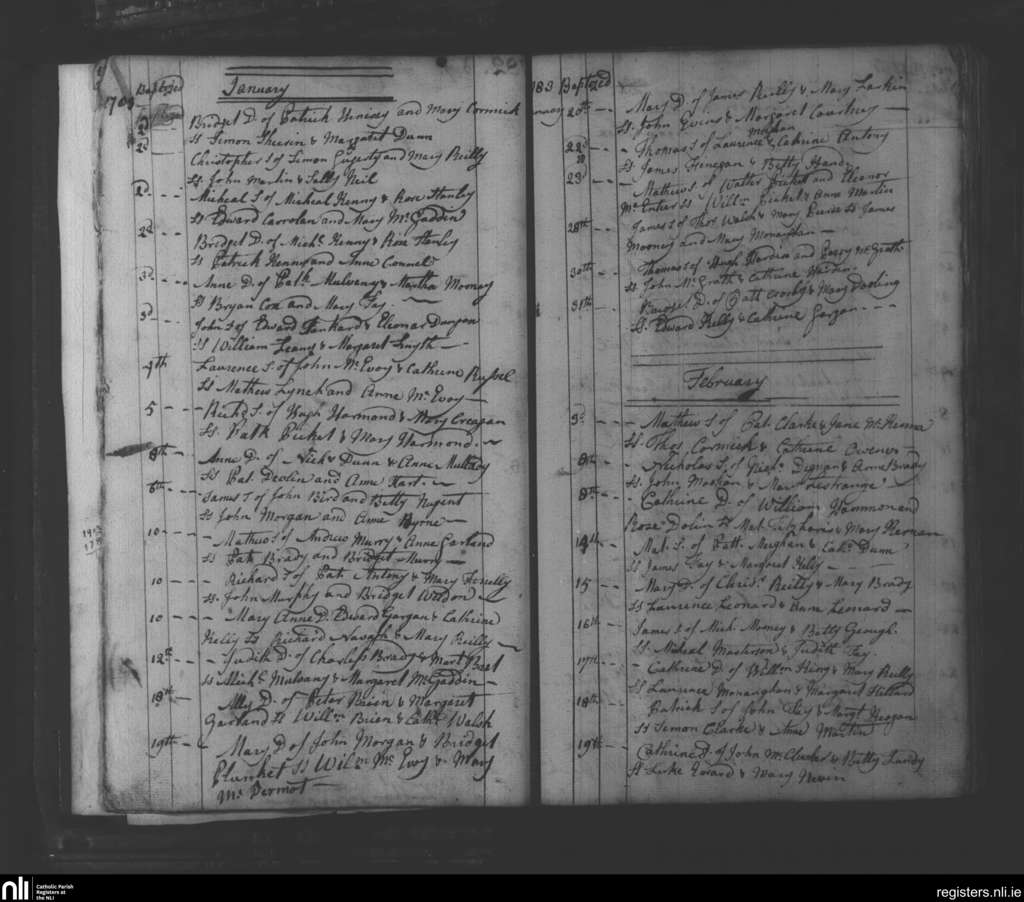 Baptized
January
Bridget D. of Patrick and Mary Cormick
Ss Simon & Margaret Dunn
2d
Christopher S of Simon and Mary Reilly
Ss John Martin & Sally Neil
2d
Micheal S of Micheal Kenny & Rose Stanley
Ss Edward Carrolan and Mary McGadden
2d
Bridget D. of Michl. Kenny & Rose Stanley
Ss Patrick Kenny and Anne Connel
3d
Anne D. of Patk. Mulvany & Martha Mornay
Ss Bryan Cox and Mary Fay.
3d
John S of Edward Tankard & Eleonar Dungan
Ss William & Margaret Smyth
4th
Laurence S. of John McEvoy & Cathrine Russel
Ss Mathew Lynch and Anne McEvoy
5
Richd. S. of Hugh Harmond & Mary Creggan
Ss. Patk Picket & Mary Harmond.
8th
Anne D. of Nichs Dunn & Anne
Ss Pat. Devlin and Anne Hart
6th
James S of John Bird and Betty Nugent
Ss John Morgan and Anne Byrne
10
Mathew S of Andrew Murry & Anne Garland
Ss Patk Brady and Bridget Murry
10
Richard S of Pat. Antony & Mary Fenelly
Ss. John Murphy and Bridget Weldon
10
Mary Anne D. Edward Gargan & Cathrine
Kelly Ss Richard Navagh & Mary Reilly
12th
Judith D. of Charless Brady & Mart
Ss Michl. Mulvany & Margaret McGaddin
18th
Ally D. of Peter Brien & Margaret
Garland Ss Willm. Brien & Cathe. Walsh
19th
Mary D of John Morgan & Bridget
Plunket Ss Willm McEvoy & Mary
McDermot
Baptized
20th
Mary D. of James Reilly & Mary Larkin
Ss. John & Margaret Courtney
22d
Thomas S of Laurence Meehan & Cathrine Antony
Ss. James Finegan & Betty Hand
23d
Mathew S of Walter Picket and Eleonor
McEntire Ss Willm Picket & Anne Martin
28th
James S of Thos. Walsh & Mary Pierce Ss James
Mooney and Mary Monaghan
30th
Thomas S of Hugh and McGrath
Ss John McGrath & Cathrine
31th
D. of Patt Crosby & Mary Dooling
Ss. Edward Kelly & Cathrine Gargan
February
3d
Mathew S of Pat. Clarke & Jane McKenna
Ss. Thos. Cormick & Cathrine Owens
8th
Nicholas S. of Nichs. Dignan & Anne Brady
Ss. John & Mary Lestrange
8th
Cathrine D. of William Hammon and
Rose Dolin Ss Mat. Fitzharris & Mary Kernan
14th
Mat. S. of Patt. Meighan & Cathe Dunn
Ss James Fay & Margaret Kelly
15
Mary D. of Chrisr. Reilly & Mary Brady
Ss Laurence Leonard & Anne Leonard
16th
James S. of Mich. Morney & Betty Geough.
Ss. Micheal Masterson & Judith Fay.
17th
Cathrine D. of Willm King & Mary Reilly
Ss Laurence Monanghan & Margaret
18th
Patrick S of John Fey & Margt Heggan
Ss Simon Clarke & Anne Martin
19th
Cathrine D. of John McClusker & Betty Lundy
Ss Luke & Mary Nevin
nli
Catholic Parish
Registers at
the NLI
registers.nli.ie